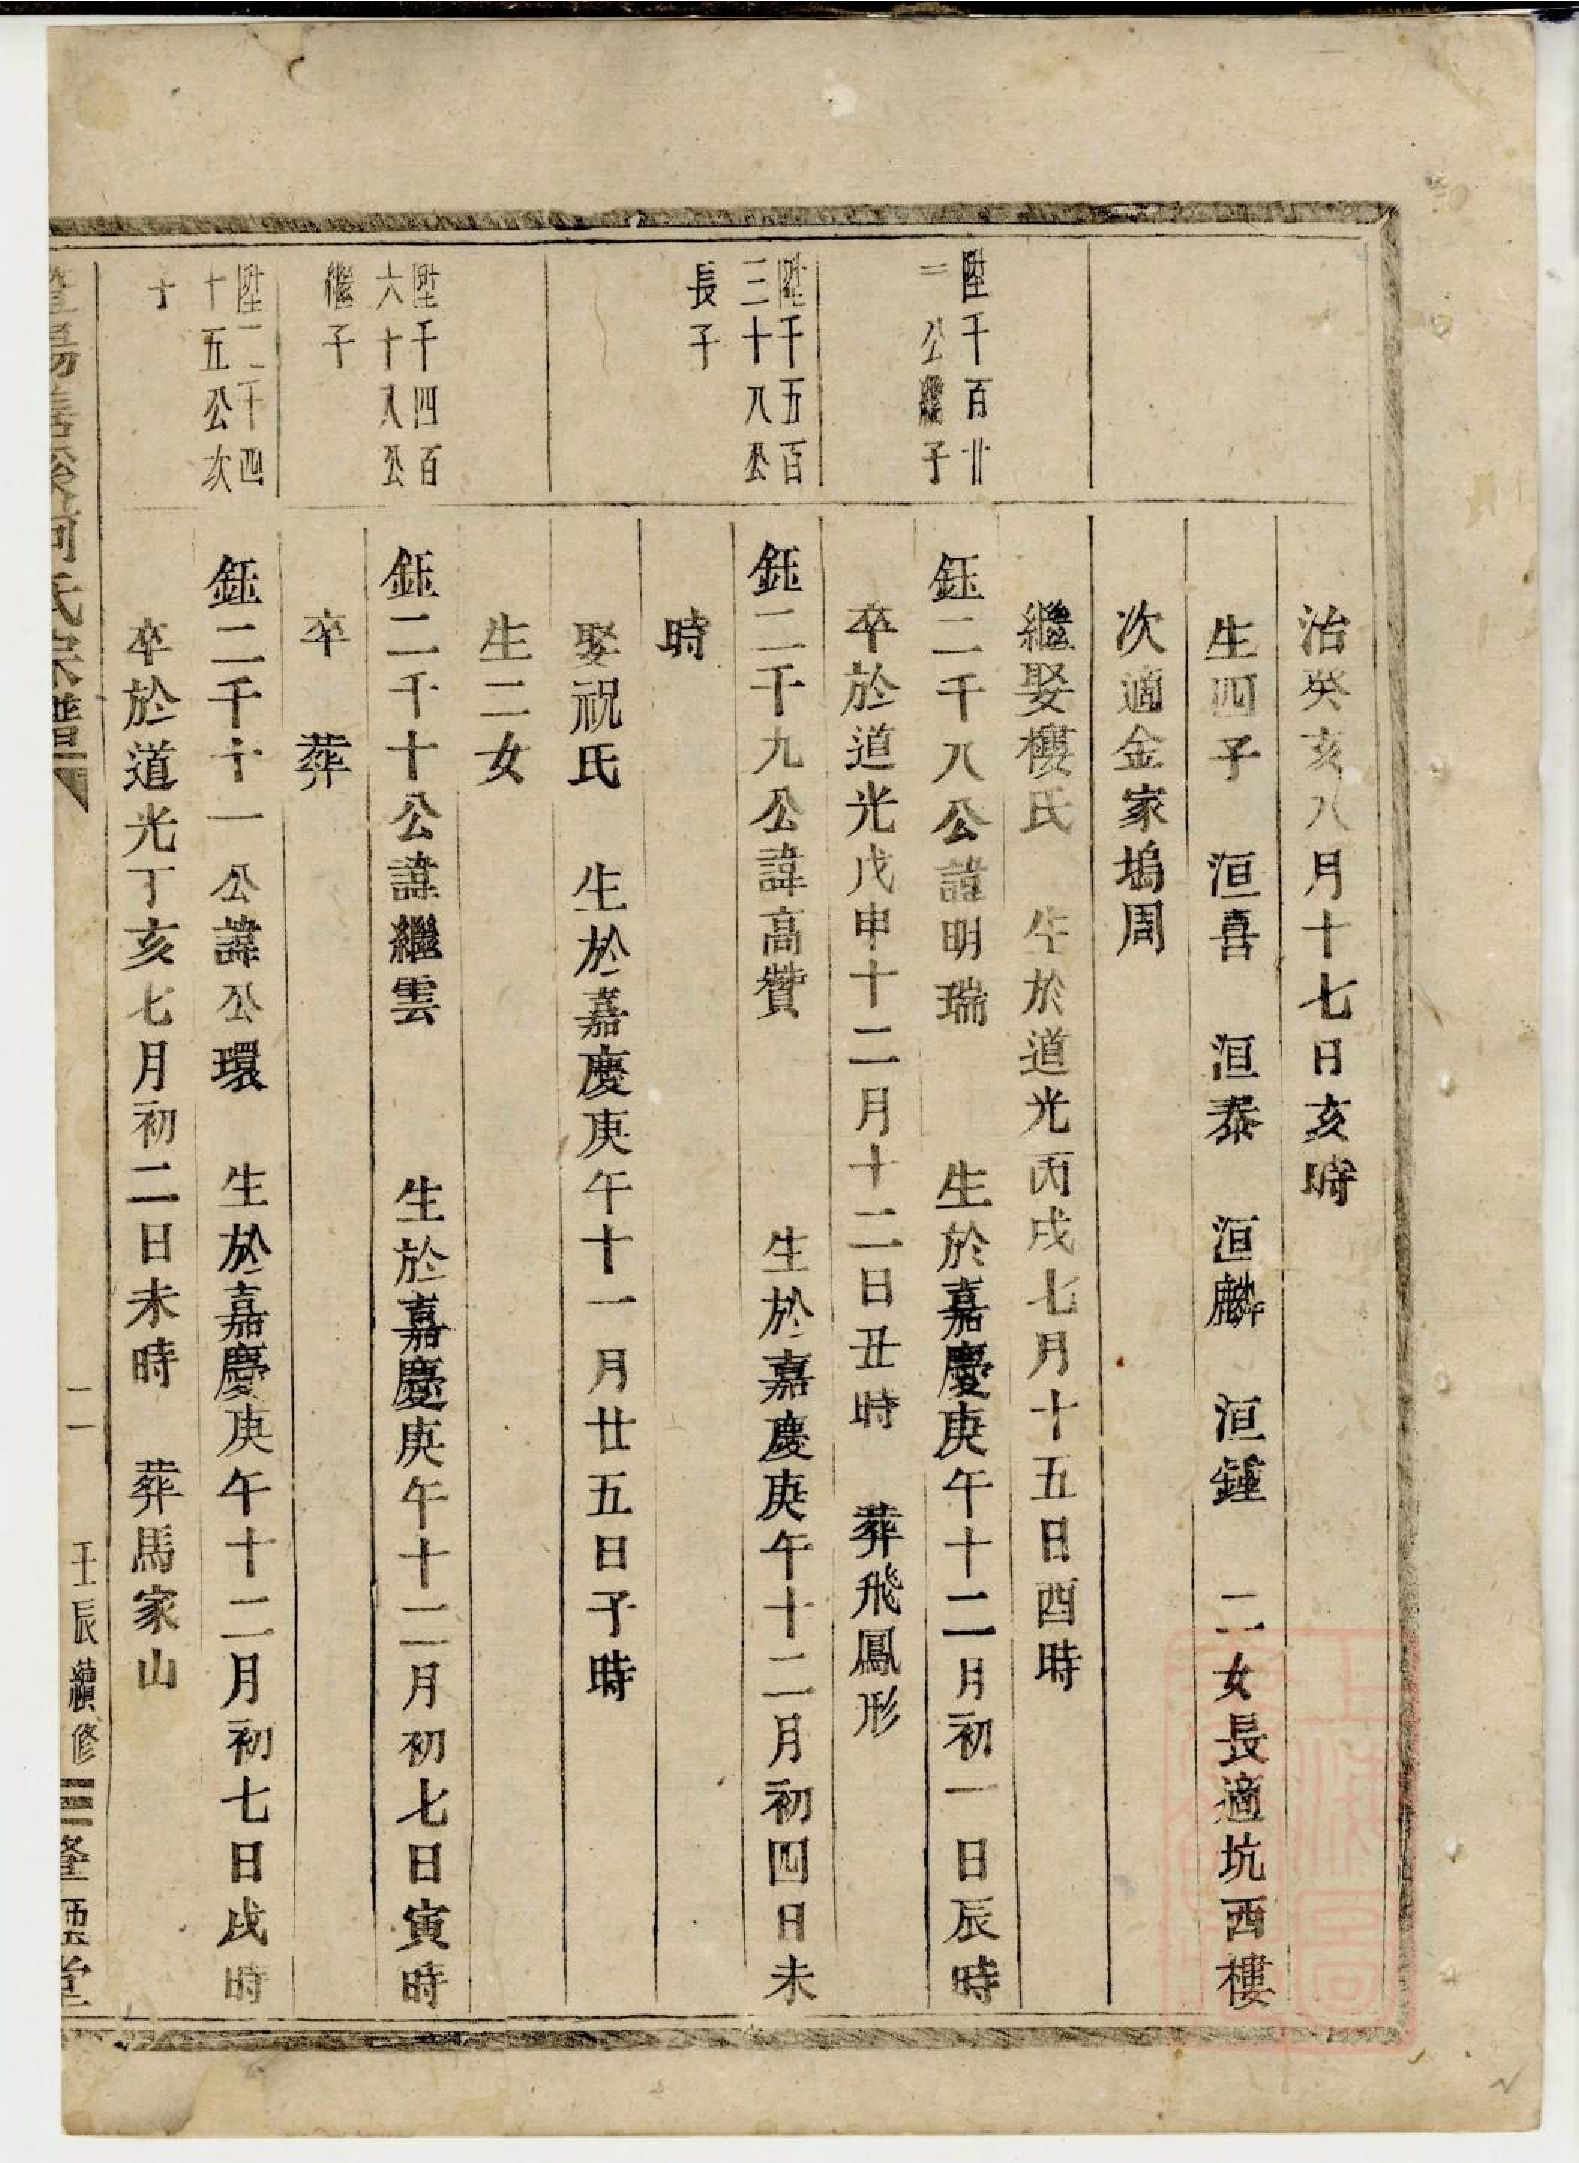 治癸亥八月十七日亥時
生四子　洹喜　洹泰　洹麟　洹鍾　二女長適坑西樓
次適金家塢周
繼娶樓氏　生於道光丙戌七月十五日酉時
陞千百廿
一公繼子
鈺二千八公諱明瑞　生於嘉慶庚午十二月初一日辰時
卒於道光戊申十二月十二日丑時　葬飛鳳形
陞千五百
三十八公
長子
鈺二千九公諱高贊　生於嘉慶庚午十二月初四日未
時
娶祝氏　生於嘉慶庚午十一月廿五日子時
生二女
陞千四百
六十八公
繼子
鈺二千十公諱繼雲　生於嘉慶庚午十二月初七日寅時
卒　葬
陞二千四
十五公次
子
鈺二千十一公諱公環　生於嘉慶庚午十二月初七日戌時
卒於道光丁亥七月初二日未時　葬馬家山
何氏宗譜
二　壬辰續修
堂